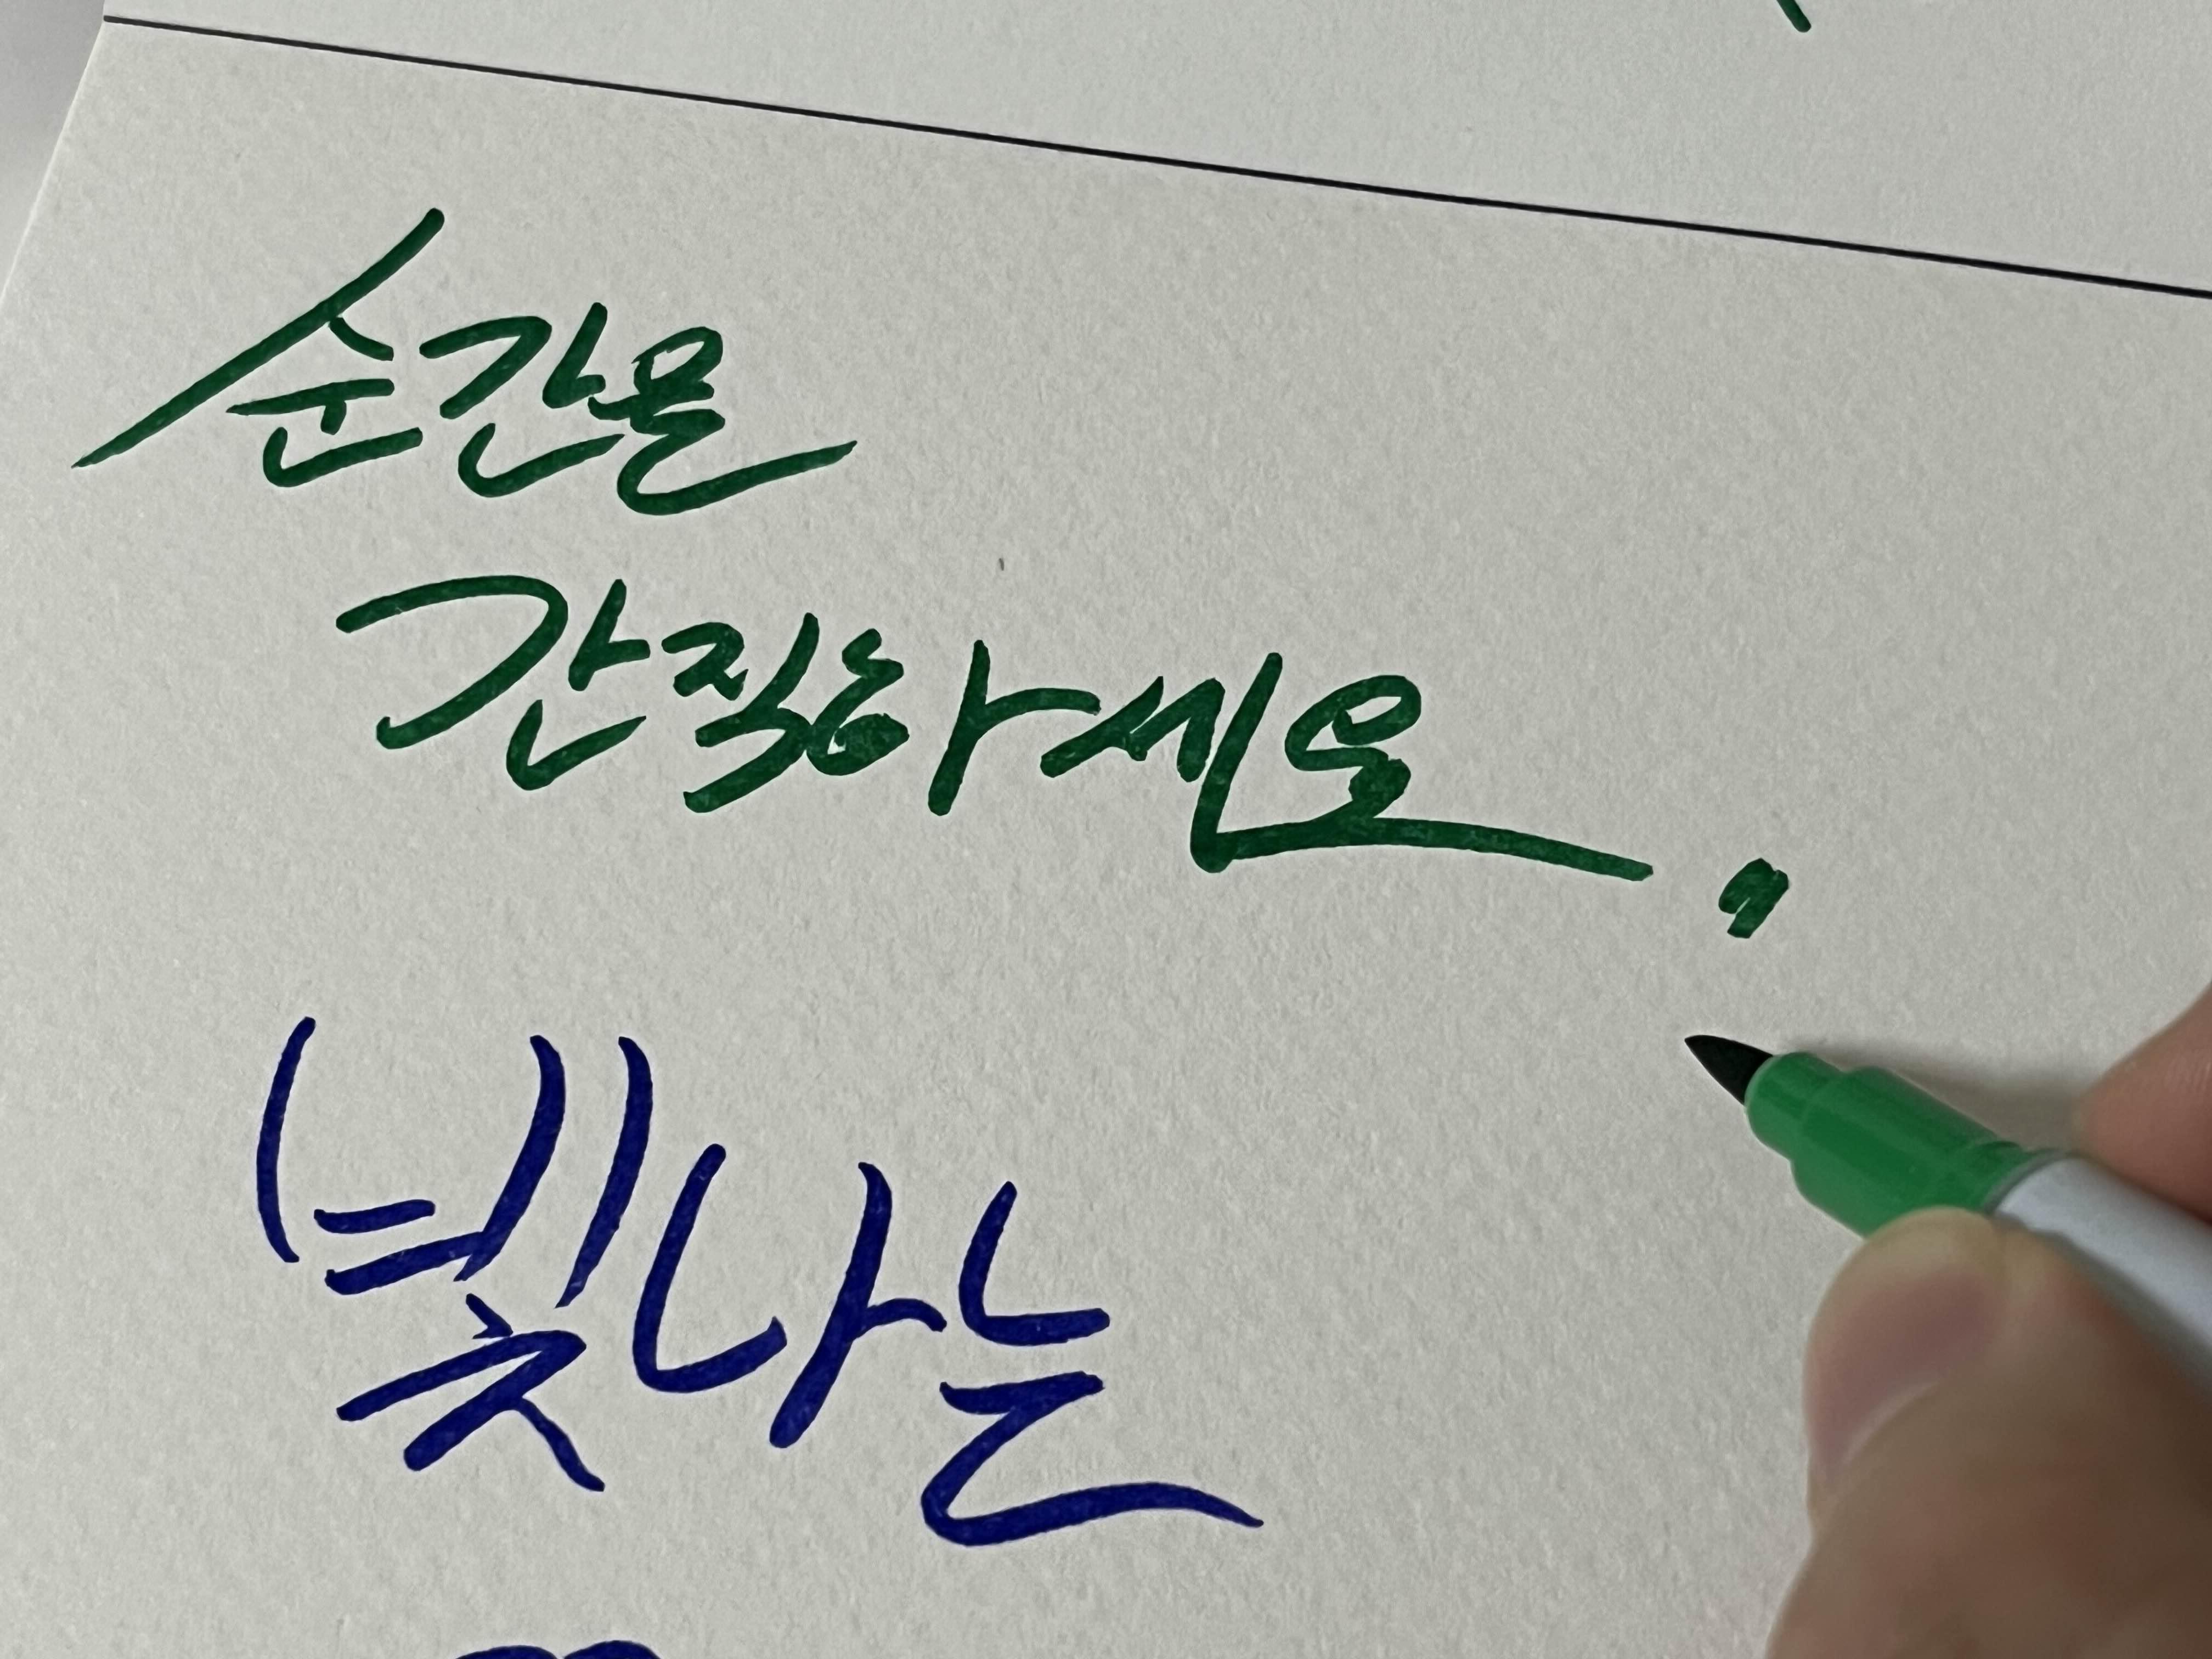 순간은
간직하세요.
빛나는